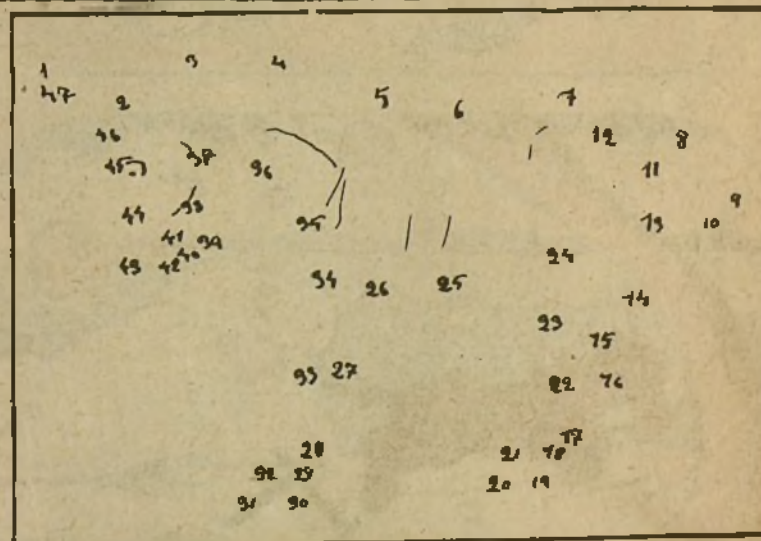 3 4
1
47 2 5 6 7
46 12 8
45 37 36 11
9
44 38 35 13 10
41 40 39 24
43 42
34 26 25
14
23
15
33 27
22 16
17
28 21 18
32 29
20 19
31 30